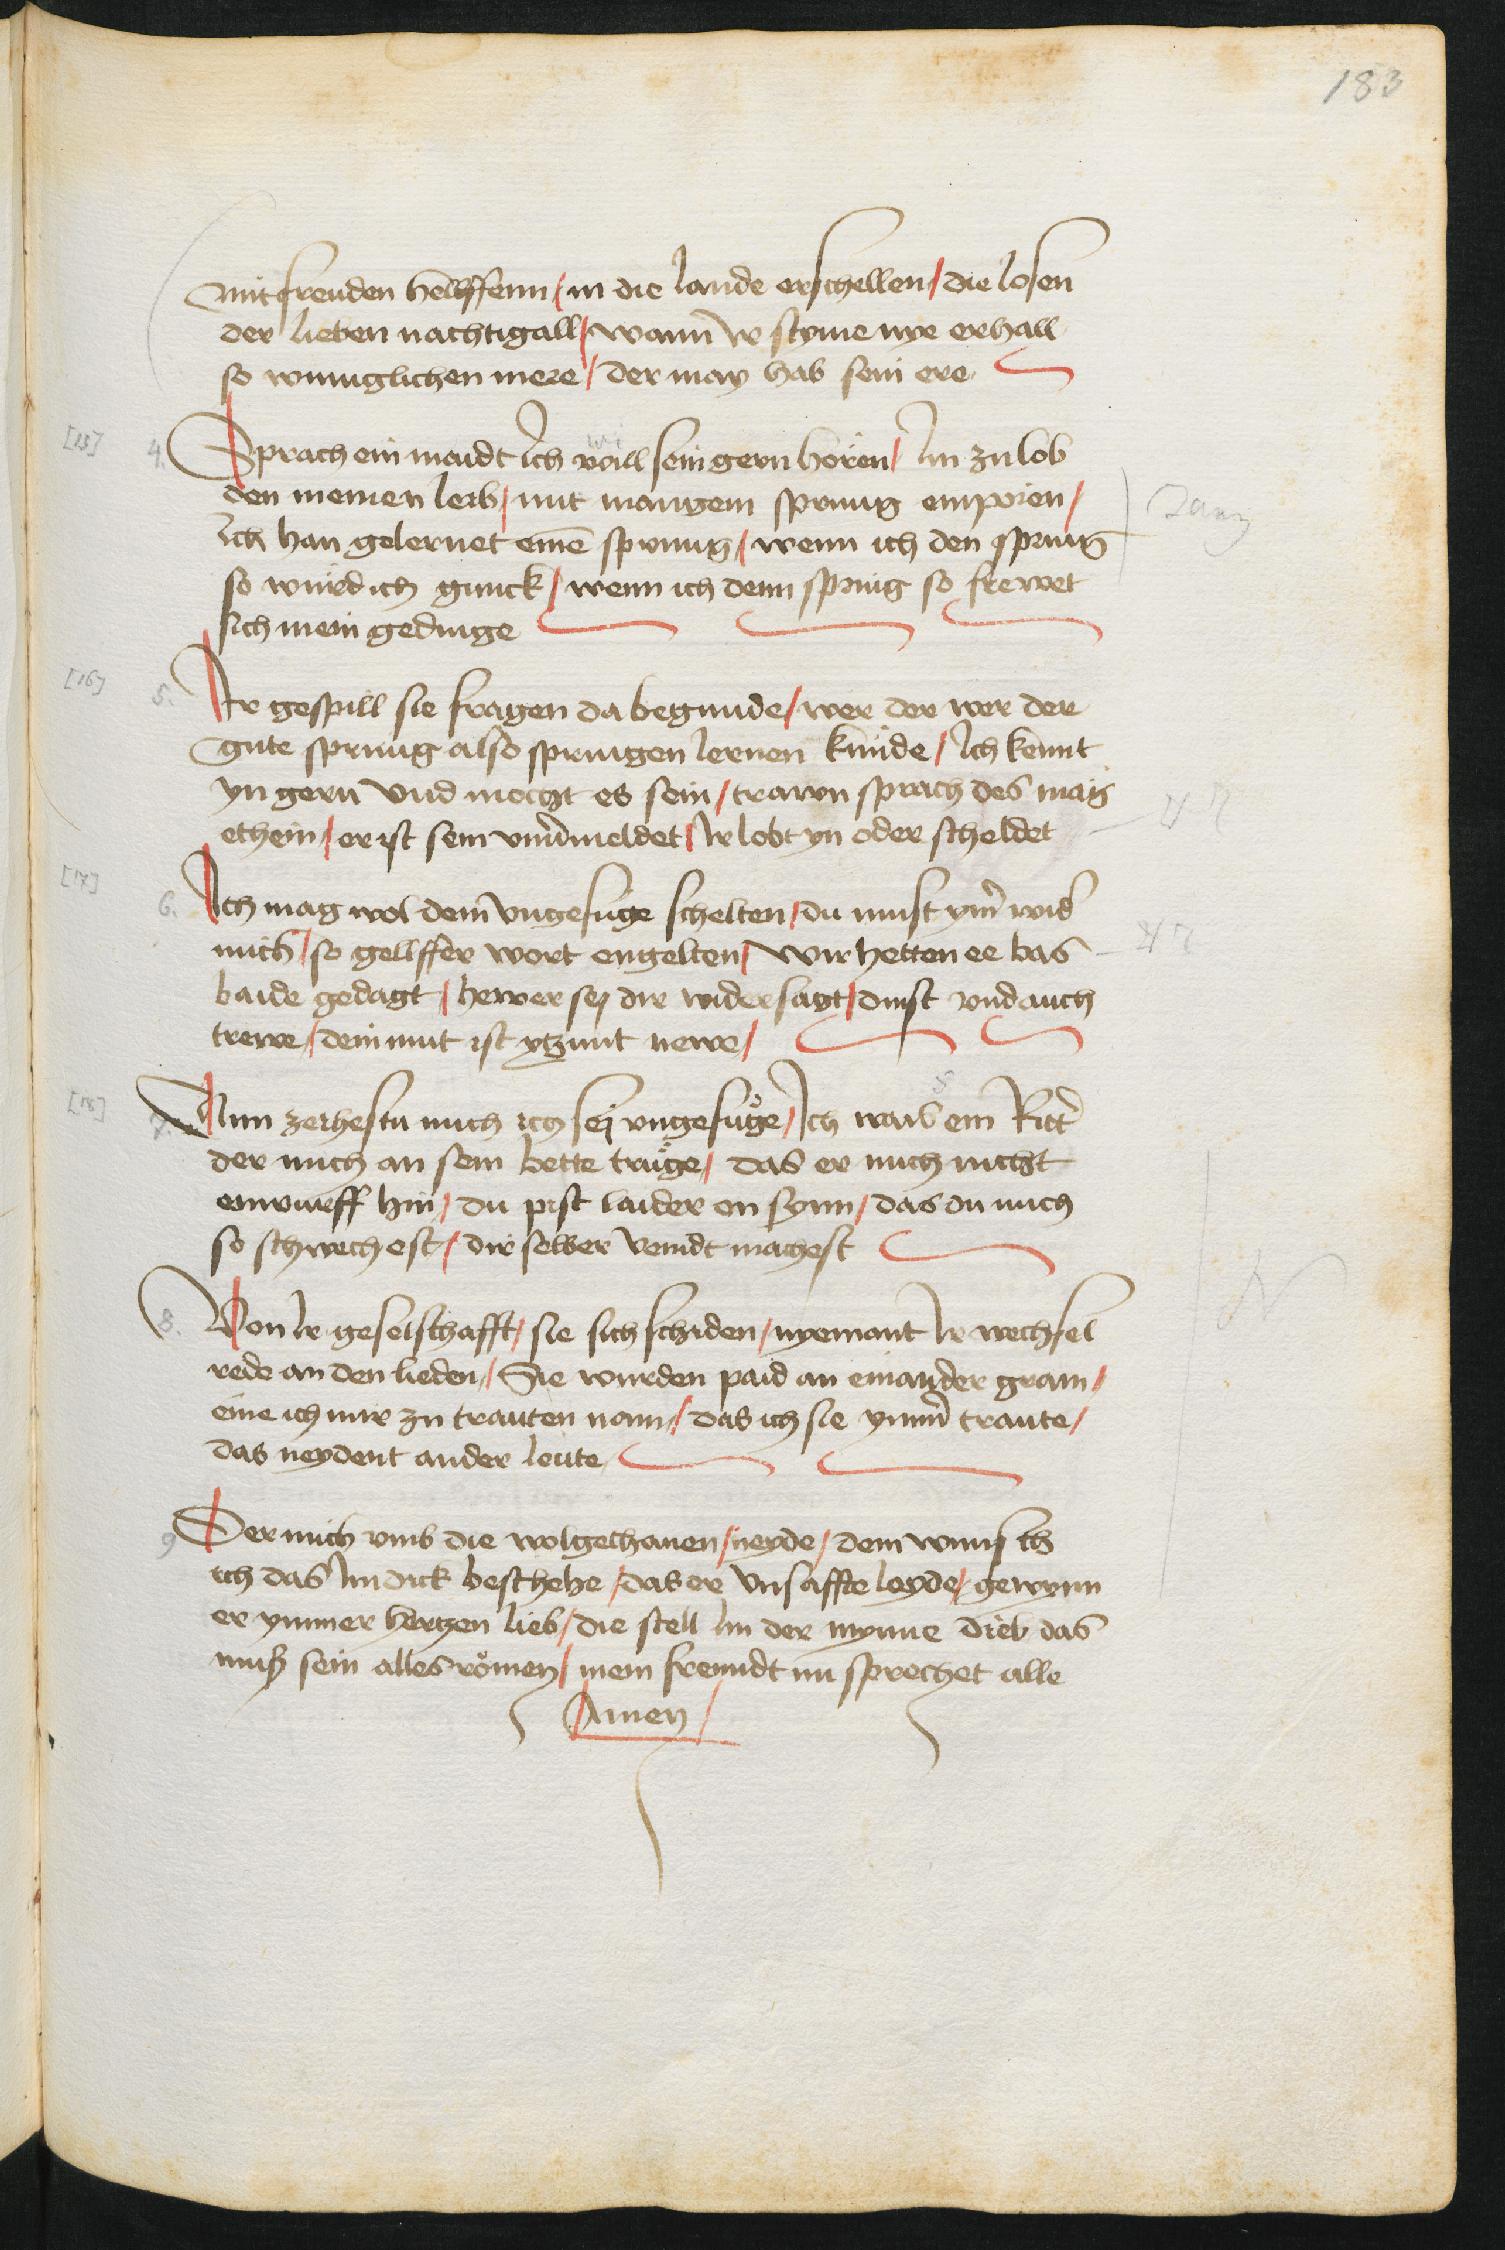 183
mit freuden helffenn / in die lande erschellen / die losen
der lieben nachtigall / wann Ir styme nye erhall
so wunniglichen mere / der may hab sein ere
[15] 4. Sprach ein maidt Ich will sein gern hören / Im zu lob
den meinen leib / mit mangem sprung emporen /
Ich han gelernet eine sprung / wenn ich den spring
so würd ich gunck / wenn ich denn spring so frewet
sich mein gedinge
[16] 5. Ir gespill sie fragen da begunde / wer der wer der
gute sprung also springen lernen künde / Ich kennt
yn gern vnd mocht es sein / trawn sprach des mag
ethein / er ist sein vnv̄meldet / Ir lobt yn oder scheldet
[17] 6. Ich mag wol dein vngefuge schelten / du must ym̄ wid̄
mich / so gellffer wort engelten / wir hetten ee bas
baide gedagt / hewer sej dir widersagt / dinst vnd auch
trewe / dein mut ist ytzunt newe /
[18] 7. Nun zerhestu mich ich sej vngefüge / Ich wais ein Ritt̄
der mich an sein bette trüge / das er mich nicht
enwurff hin / du pist laider on synn / das du mich
so schwechest / dir selber veindt machest
8. Von Ir geselschafft / sie sich schiden / nyemant Ir wechsel
rede an den lieden / Sie wurden paid an einander gram /
eine ich mir zu trauten nam / das ich sie ymm̄ traute /
das neydent ander leute
9 Der mich vmb die wolgethanen / neyde / dem wunsch
ich das Im dick beschehe / das er vnsaffte leyde / gewynn
er ymmer hertzen lieb / die stell Im der mynne dieb das
muß sein alles römen / mein freundt nu sprechet alle
Amen /